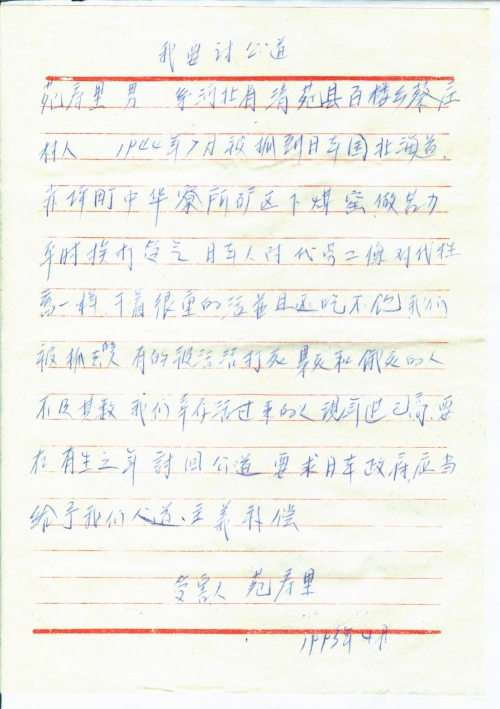 我要讨公道
苑寿里 男 系河北省清苑县百楼乡蔡庄
村人 1944年7月被抓到日本国北海道
井町中华寮所矿区下煤窑.做苦力
平时挨打受气 日本人对代劳工像对代牲
畜一样.干着很重的活并且还吃不饱我们
被抓去 有的被活活打死 累死和饿死的人
不及其数 我们幸存活过来的人现年近已高.要
在有生之年討回公道 要求日本政府.应当
给予我们人道.主义补偿
受害人 苑寿里
4月